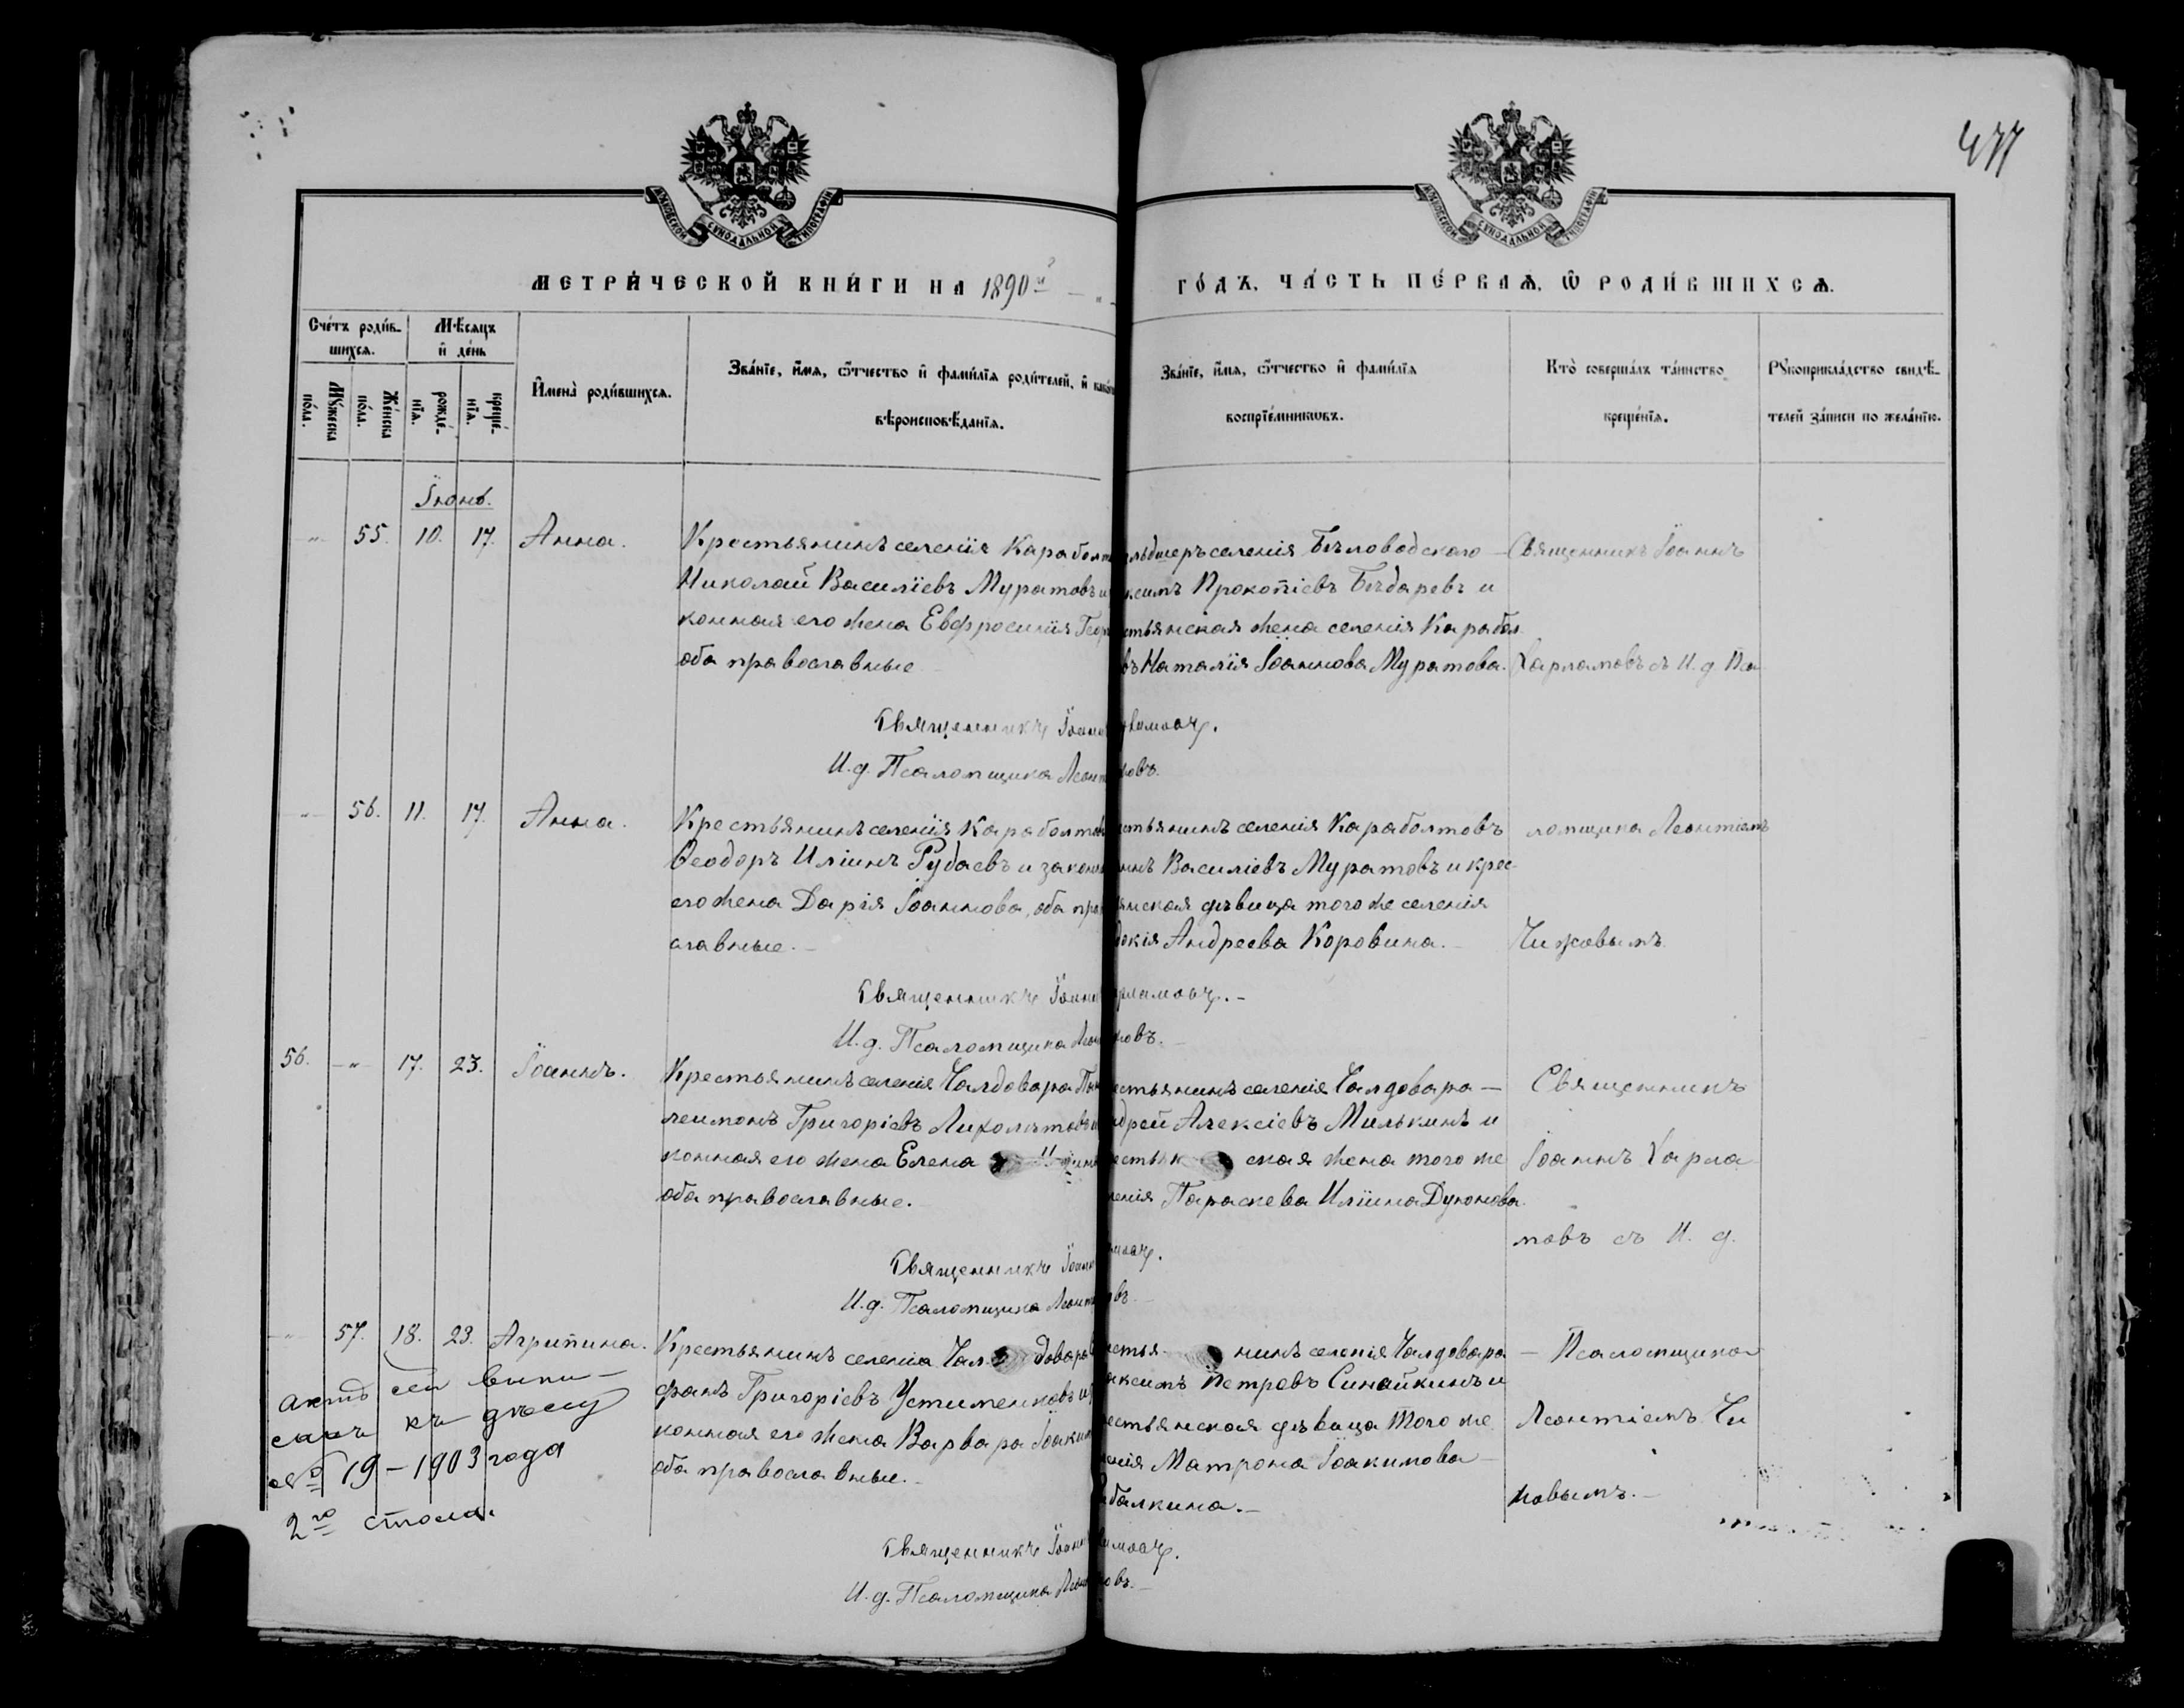 477
МОСКОВСКОЙ СѴНОДАЛЬНОЙ ТИПОГРАФІИ
МОСКОВСКОЙ СѴНОДАЛЬНОЙ ТИПОГРАФІИ
МЕТРИ́ЧЕСКОЙ КНИ́ГИ НА 1890й
ГО́ДЪ, ЧА́СТЬ ПЕ́РВАѦ, Ѡ҆ РОДИ́ВШИХСѦ.
Счётъ роди́вшихсѧ.
Мꙋ́жеска по́ла.
Же́нска по́ла.
Мѣ́сѧцъ и҆ де́нь
рожде́нїѧ.
креще́нїѧ.
И҆мена̀ роди́вшихсѧ.
Зва́нїе, и҆́мѧ, ѻ҆́тчество и҆ фами́лїѧ роди́телей, и҆
вѣроисповѣ́данїѧ.
Зва́нїе, и҆́мѧ, ѻ҆́тчество и҆ фами́лїѧ
воспрїе́мникѡвъ.
Кто̀ соверша́лъ та́инство
креще́нїѧ.
Рꙋкоприкла́дство свидѣ́-
телей за́писи по жела́нїю.
Іюнь.
" 55. 10. 17. Анна.
Крестьянинъ селенія Караболт
Николай Василіевъ Муратовъ и
конная его жена Евфросинія Геор
оба православные
льдшеръ селенія Бѣловодскаго –
ксимъ Прокопіевъ Бѣдаревъ и
стьянская жена селенія Карабол
въ Наталія Іоаннова Муратова.
Священникъ Іоаннъ
Харламовъ съ И. д. Пса
Священникъ Іоанн ламовъ.
И. д. Псаломщика Леонт ковъ.
" 56. 11. 17. Анна.
Крестьянинъ селенія Караболтов
Ѳеодоръ Иліинъ Рубаевъ и законн
его жена Дарія Іоаннова, оба пра
славные. –
стьянинъ селенія Караболтовъ
ннъ Василіевъ Муратовъ и крес-
янская дѣвица того же селенія
докія Андреева Коровина. –
ломщика Леонтіемъ
Чижовымъ.
Священникъ Іоанн рламовъ. –
И. д. Псаломщика Леон ковъ. –
56. – " – 17. 23. Іоаннъ.
Крестьянинъ селенія Чалдовара Пан
леимонъ Григоріевъ Лихолѣтовъ и
конная его жена Елена
оба православные. –
естьянинъ селенія Чалдовара –
дрей Алексіевъ Милькинъ и
естьян ская жена того же
ленія Параскева Иліина Дуюнова
Священникъ
Іоаннъ Харла
мовъ съ И. д.
Священникъ Іоанн мовъ.
И. д. Псаломщика Леонт въ. –
" 57. 18. 23. Агрипина.
Крестьянинъ селенія Чал довара
фанъ Григоріевъ Устименковъ и
конная его жена Варвара Іоаким
оба православные. –
естья- нинъ селенія Чалдовара
аксимъ Петровъ Синайкинъ и
естьянская дѣвица того же
ленія Матрона Іоакимова –
балкина. –
– Псаломщика
Леонтіемъ Чи
жовымъ. –
актъ сей выпи-
санъ къ дѣлу
№ 19 – 1903 года
2го стола.
Священникъ Іоанн ламовъ.
И. д. Псаломщика Леон овъ. –